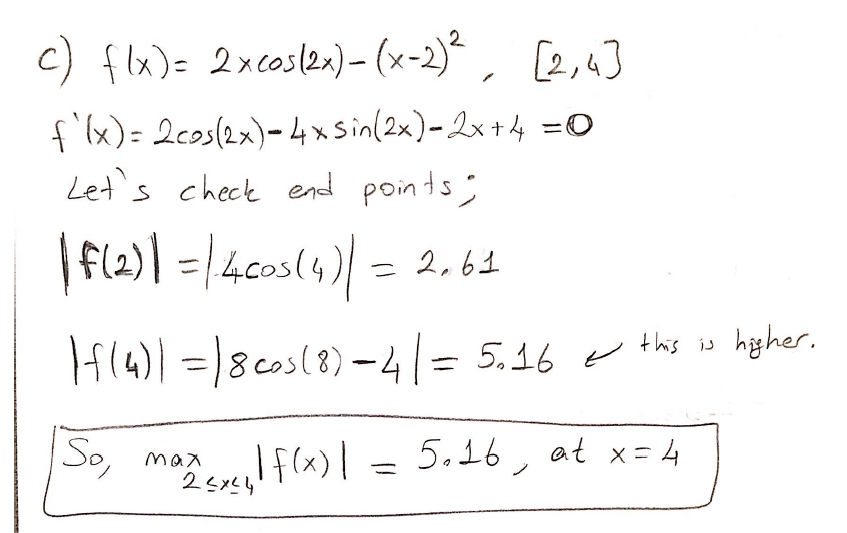 c) f(x) = 2xcos(2x) – (x-2)², [2,4]
f'(x) = 2cos(2x) – 4x sin(2x) – 2x + 4 = 0
Let's check end points;
|f(2)| = |4cos(4)| = 2.61
|f(4)| = |8cos(8) – 4| = 5.16 ↙ this is higher.
So, max 2≤x≤4 |f(x)| = 5.16, at x = 4